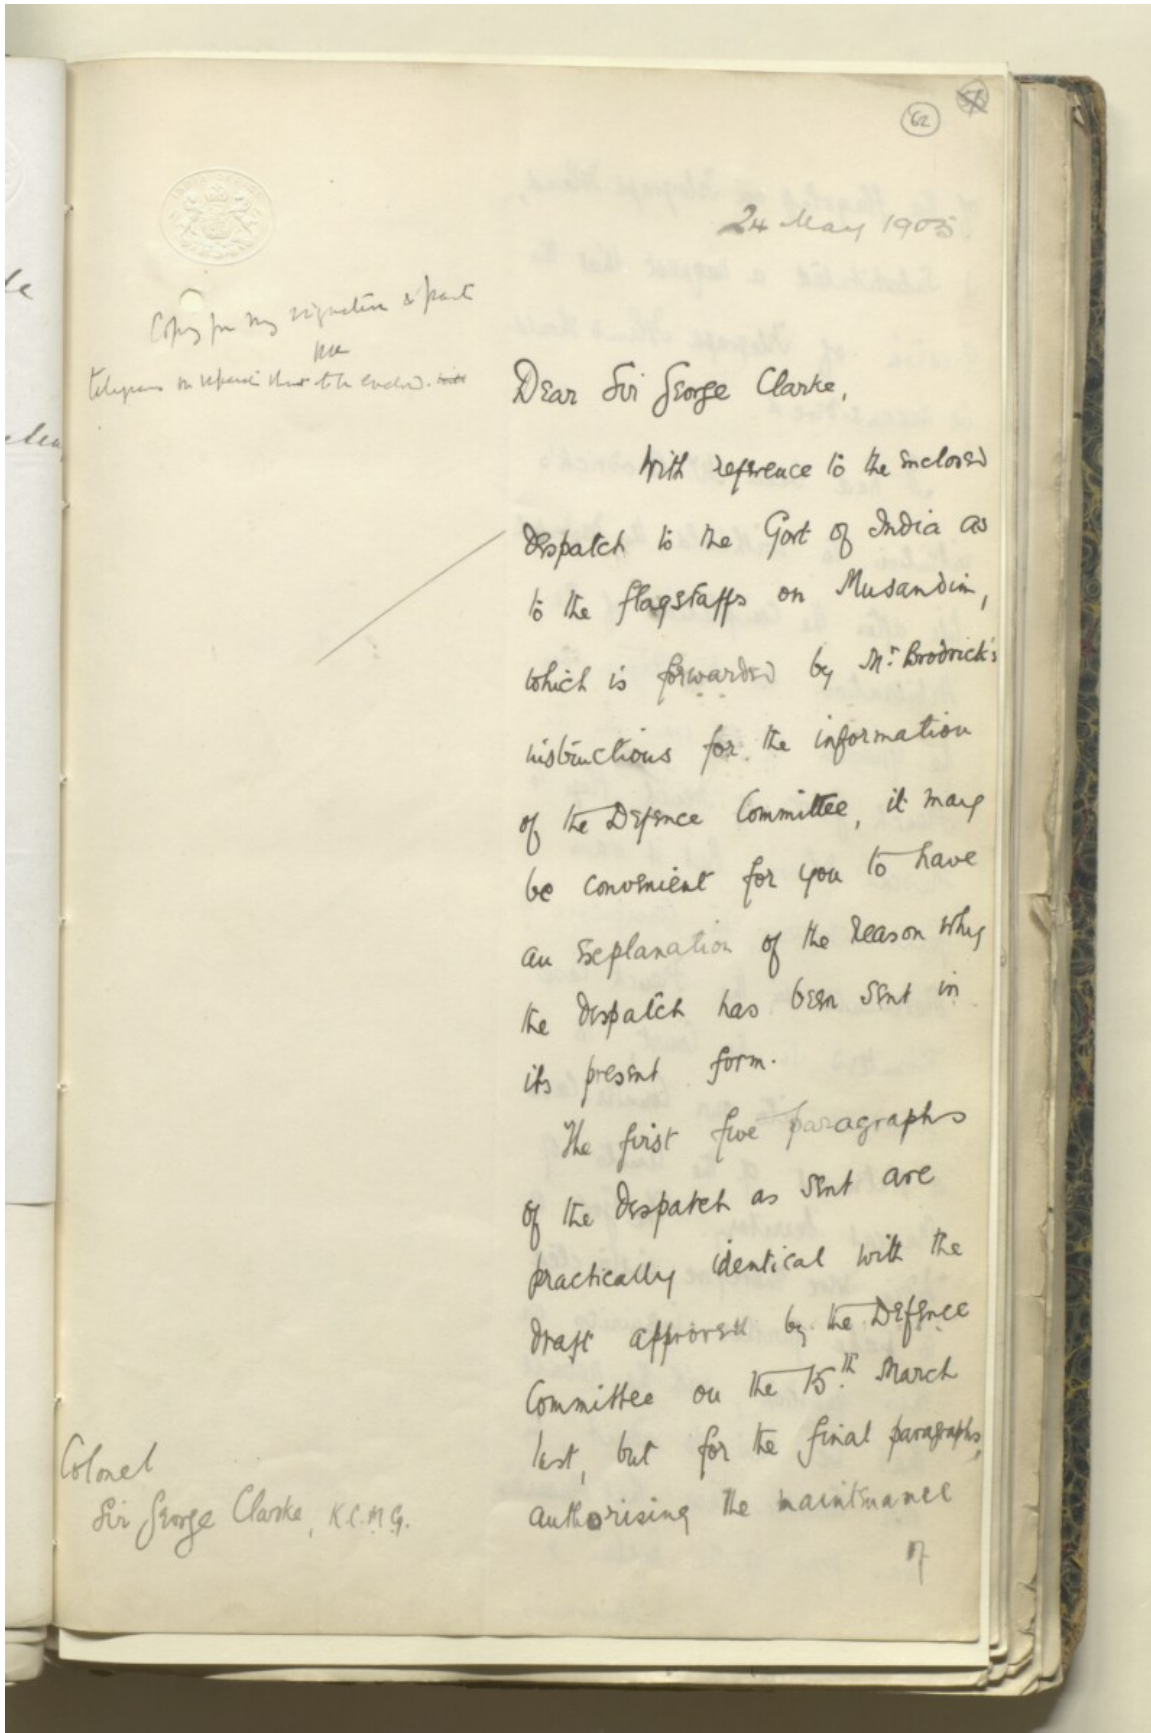 62
24 May 1905
Copy for my signature & print
telegrams on separate sheet to be enclosed.
Dear Sir George Clarke,
With reference to the enclosed
despatch to the Govt of India as
to the flagstaffs on Musandim,
which is forwarded by Mr. Brodrick's
instructions for the information
of the Defence Committee, it may
be convenient for you to have
an explanation of the reason why
the despatch has been sent in
its present form.
The first five paragraphs
of the despatch as sent are
practically identical with the
draft approved by the Defence
Committee on the 15th March
last, but for the final paragraphs,
authorising the maintenance
of
Colonel
Sir George Clarke, K.C.M.G.